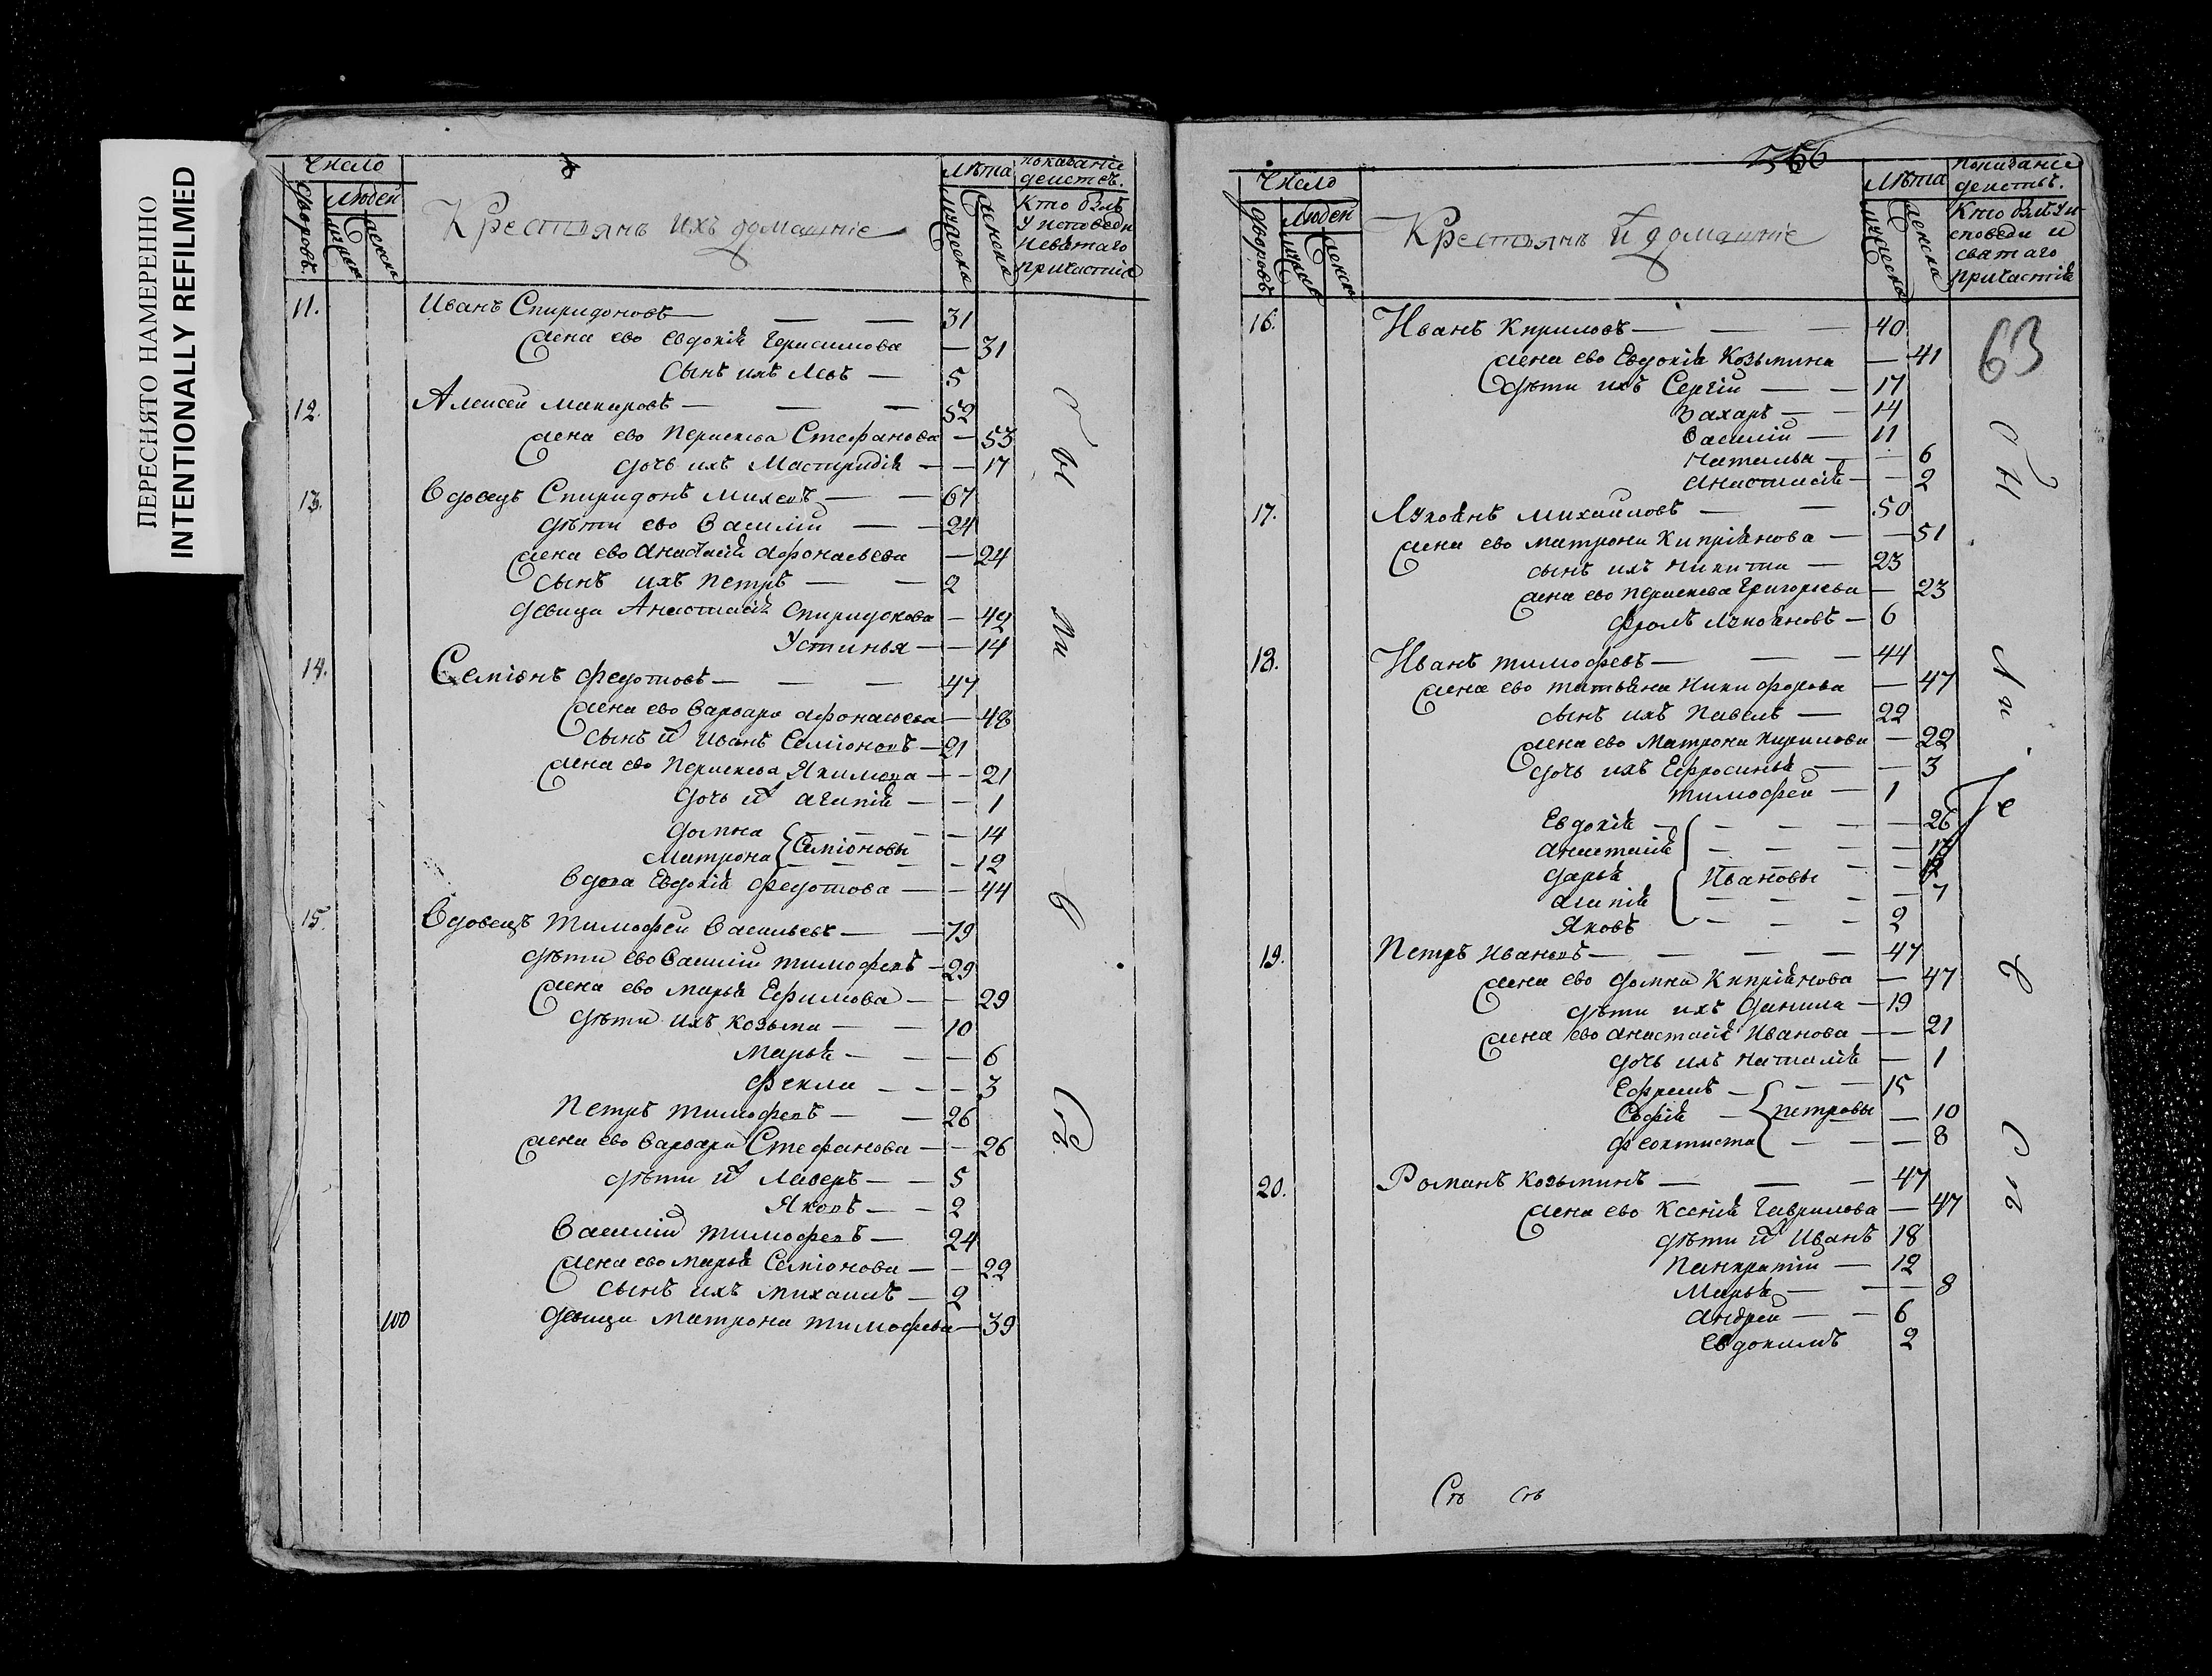 ПЕРЕСНЯТО НАМЕРЕННО
INTENTIONALLY REFILMED
Число
дворовъ.
Людей
Крестьянъ ихъ домашніе
Лѣта
показаніе
деиств.
Кто былъ
у исповеди
причастія
11. Иванъ Спиридоновъ — — — 31
жена ево Евдокія Герасимова — 31
Сынъ ихъ Левъ — 5
12. Алексеи Макаровъ — — — 52
жена ево Параскева Стефанова — 53
дочь ихъ Мастридія — — 17
13. Вдовецъ Спиридонъ Михеевъ — — 67
дѣти ево Василіи — — 24
жена ево Анастасія Афонасьева — 24
сынъ ихъ Петръ — — 2
девица Анастасія Спиридонова — 42
Устинья — — 14
14. Семіонъ Федотовъ — — — 47
жена ево Варвара Афонасьева — 48
Сынъ их Иванъ Семіоновъ — 21
жена ево Параскева Якимова — — 21
дочь их Агапія — — 1
Домна — — — 14
Семіоновы
Матрона — — — 12
Вдова Евдокія Федотова — — 44
15. Вдовецъ Тимофеи Васильевъ — — 79
дѣти ево Василіи Тимофеевъ — 29
жена ево Марья Ефимова — — 29
дѣти ихъ Козьма — — 10
Марья — — — 6
Фекла — — — 3
Петръ Тимофеевъ — — 26
жена ево Варвара Стефанова — — 26
дѣти их Лаверъ — — 5
Яковъ — — 2
Василіи Тимофеевъ — 24
жена ево Марья Семіонова — — 22
Сынъ ихъ Михаилъ — 2
100 девица Матрона Тимофеева — 39
366
Число
дворовъ
Людей
Крестьянъ их домашніе
Лѣта
показаніе
деиств.
Кто былъ у и-
споведи и
святаго
причастія
63
16. Иванъ Кириловъ — — — 40
жена ево Евдокія Козьмина — 41
дѣти ихъ Сергіи — — 17
Захаръ — — 14
Василіи — 11
Наталья — — 6
Анастасія — — 2
17. Лукоянъ Михаиловъ — — 50
жена ево Матрона Кипріянова — — 51
сынъ ихъ Никита — 23
жена ево Параскева Григорьева — 23
Фролъ Лукояновъ — 6
18. Иванъ Тимофевъ — — — 44
жена ево Татьяна Никифорова — 47
сынъ ихъ Павелъ — 22
жена ево Матрона Кирилова — 22
дочь ихъ Ефросинья — — 3
Тимофеи — 1
Евдокія — — — — 26
Анастасія — — — —
Дарья Ивановы — —
Агапія — — — — 7
Яковъ — — — 2
19. Петръ Ивановъ — — — — 47
жена ево Домна Кипріянова — 47
дѣти ихъ Данила — 19
жена ево Анастасія Иванова — — 21
дочь ихъ Наталія — 1
Ефремъ — — — 15
Софія — Петровы — 10
Феоктиста — — — 8
20. Романъ Козьминъ — — — 47
жена ево Ксенія Гаврилова — 47
дѣти их Иванъ 18
Панкратіи — 12
Марья — — — 8
Андреи — — 6
Евдокимъ 2